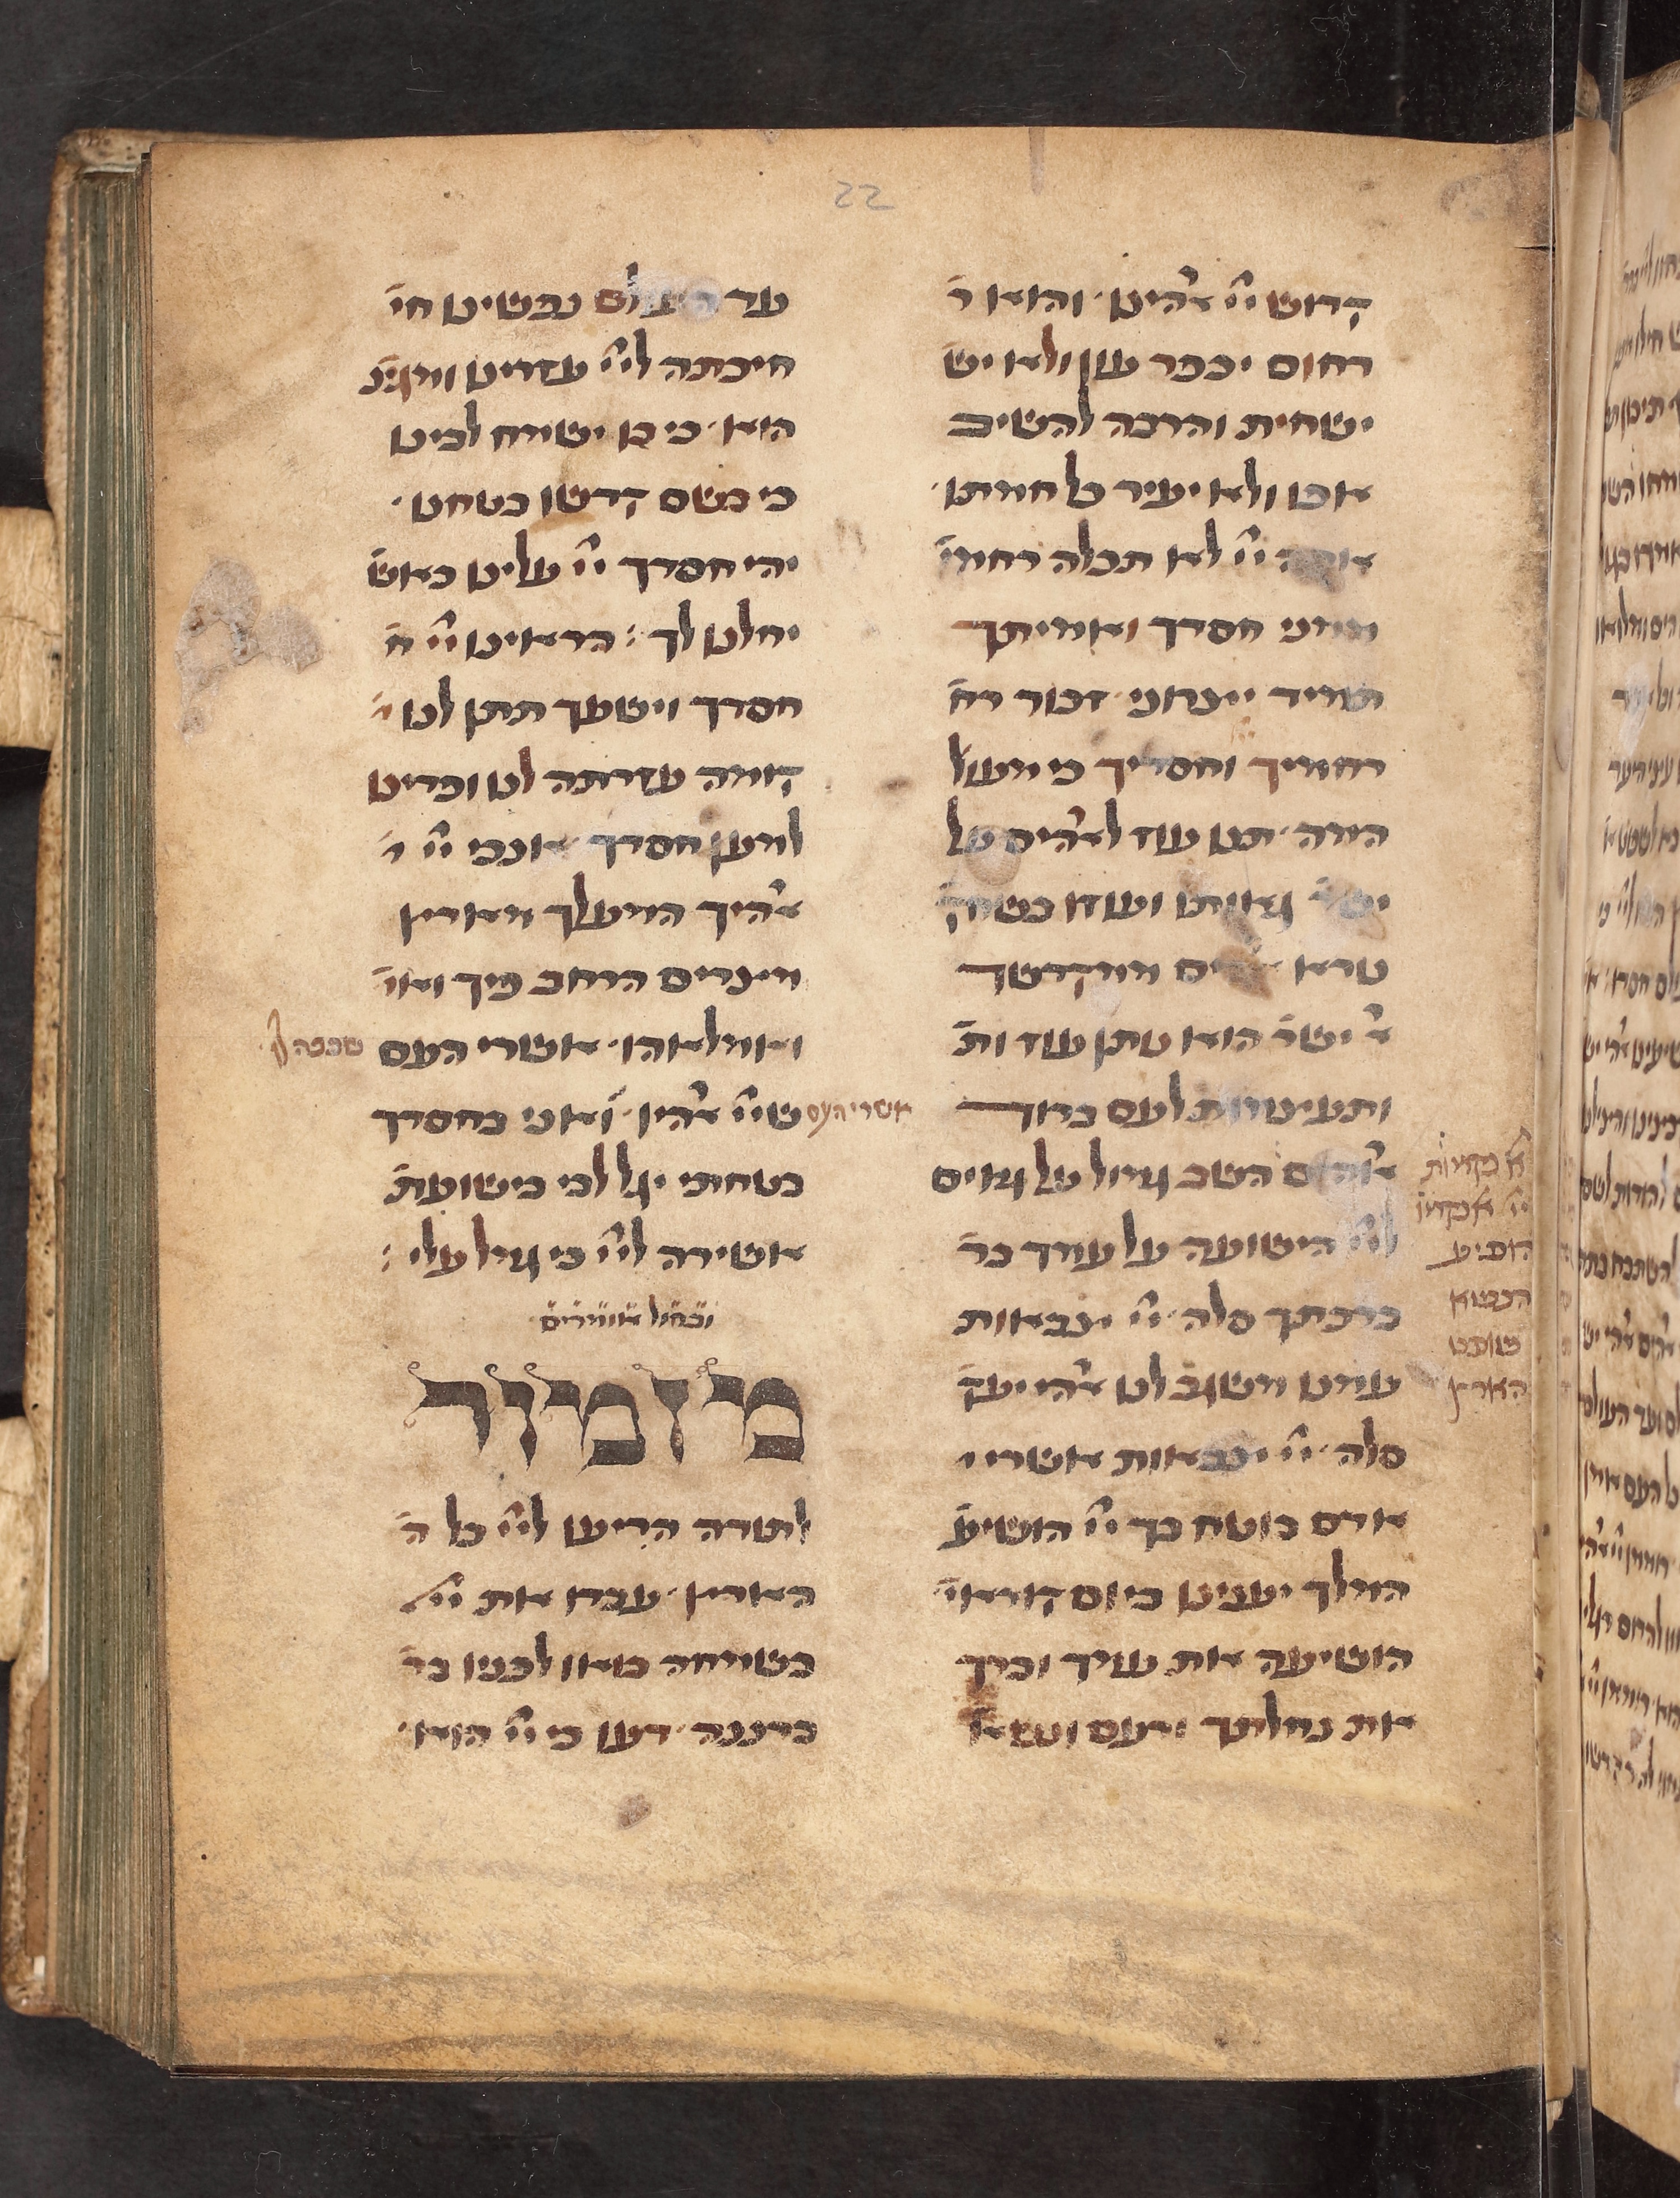 22
קדוש ייי אהינו · והוא ר
רחום יכפר עון ולא יש
ישחית והרבה להשיב
אפו ולא יעיר כל חמתו ·
אתה ייי לא תכלה רחמי
ממני חסדך ואמיתך
תמיד יצרוני · זכור רח
רחמיך וחסדיך כי מעול
המה · תנו עוז לאהים על
יש גאותו ועוזו בשחק
נורא אהים ממקדשך
א ישר הוא נותן עוז ות
ותעצומות לעם ברוך
אהים השב גמול על גאים
לייי הישועה על עמך בר
ברכתך סלה · ייי צבאות
עמנו משגב לנו אהי יעק
סלה · ייי צבאות אשרי י
אדם בוטח בך ייי הושיע
המלך יעננו ביום קוראי
הושיעה את עמך וברך
את נחליתך ורעם ונשא
א נקמות
ייי א נקמו
הופיע
הנשא
שופט
הארץ
עד העולם נפשינו חי
חיכתה לייי עזרינו ומגינ
הוא · כי בו ישמח לבינו
כי בשם קדשו בטחנו ·
יהי חסדך ייי עלינו כאש
יחלנו לך : הראינו ייי ח
חסדך וישעך תתן לנו י
קומה עזרתה לנו ופדינו
למען חסדך אנכי ייי י
אהיך המעלך מארץ
מצרים הרחב פיך ואו
ואמלאהו · אשרי העם שככה לו
אשרי העם שייי אהיו · ואני בחסדך
בטחתי יגל לבי בישועת
אשירה לייי כי גמל עלי :
ובחול אומרים
מזמור
לתודה הריעו לייי כל ה
הארץ · עבדו את ייי
בשמחה בואו לפניו בר
ברננה · דעו כי ייי הוא ·